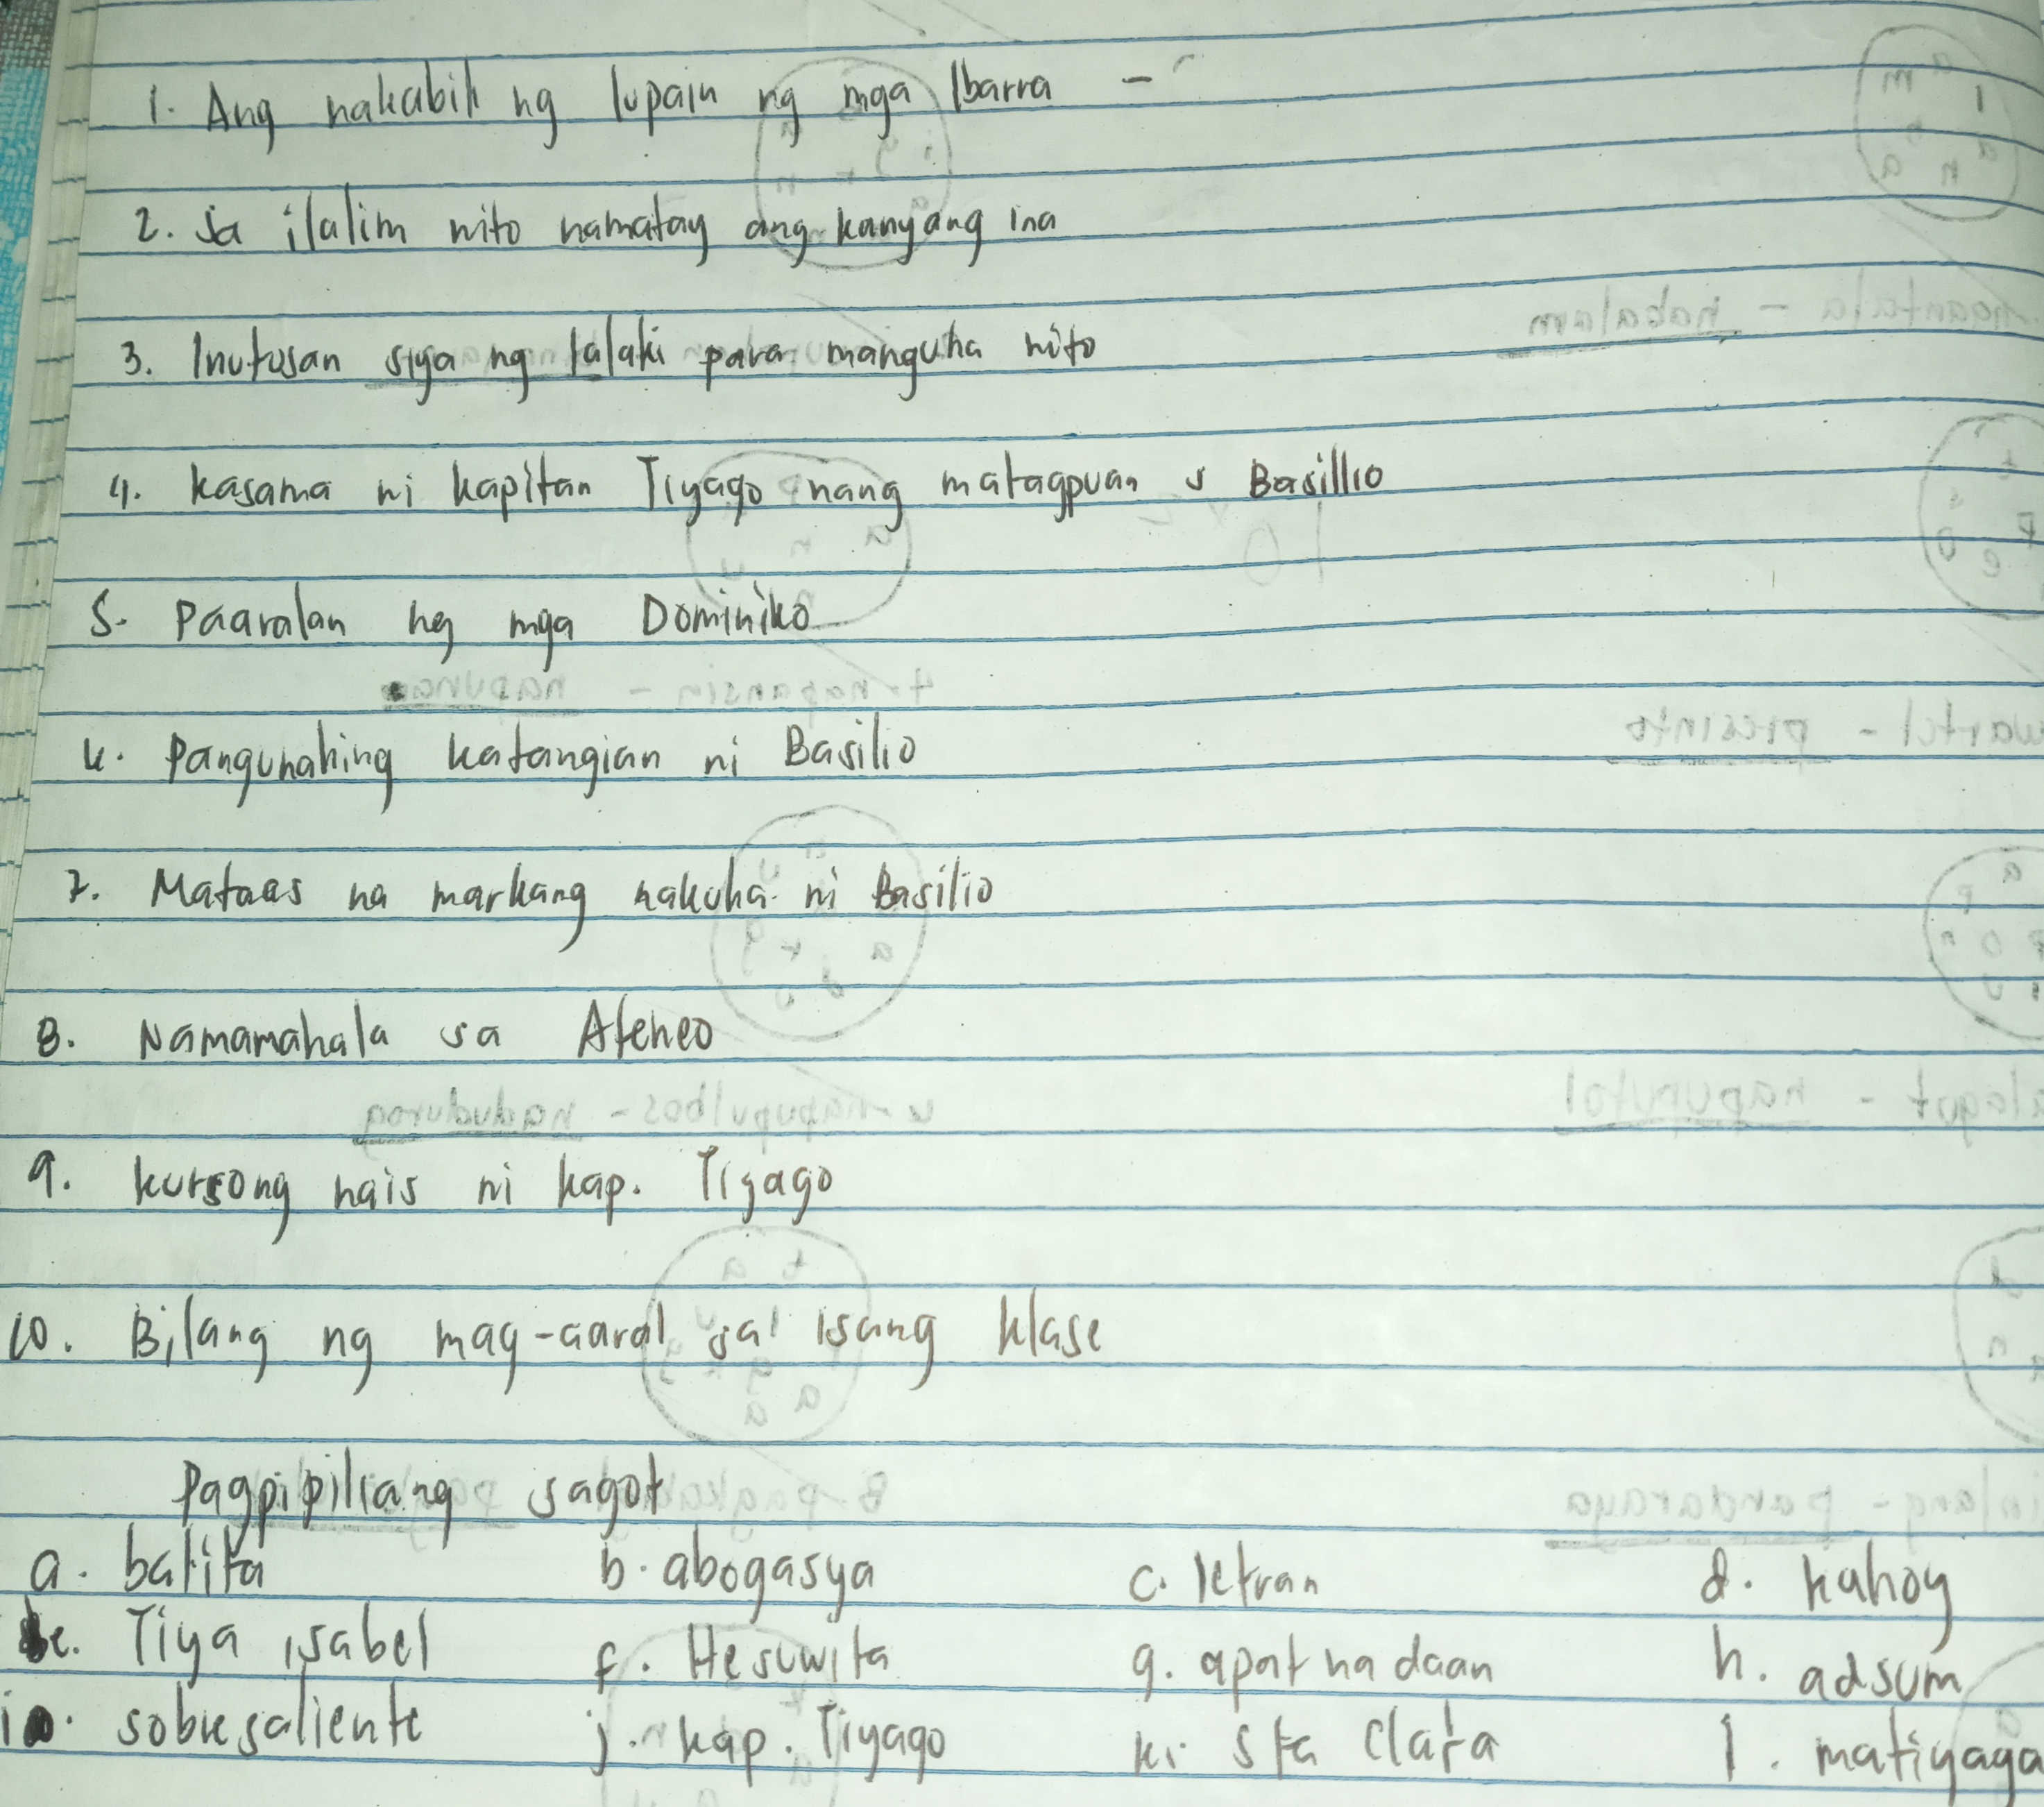 1. Ang nakabili ng lupain ng mga Ibarra -
2. Sa ilalim nito namatay ang kanyang ina
3. Inutusan siya ng lalaki para manguha nito
4. kasama ni kapitan Tiyago nang matagpuan s Basillio
5. Paaralan ng mga Dominiko
6. Pangunahing katangian ni Basilio
7. Mataas na markang nakuha ni Basilio
8. Namamahala sa Ateneo
9. kursong nais ni kap. Tiyago
10. Bilang ng mag-aaral sa isang klase
Pagpipiliang sagot
a. balita b. abogasya c. letran d. kahoy
e. Tiya isabel f. Hesuwita g. apat na daan h. adsum
i. sobresaliente j. kap. Tiyago k. Sta Clara l. matiyaga